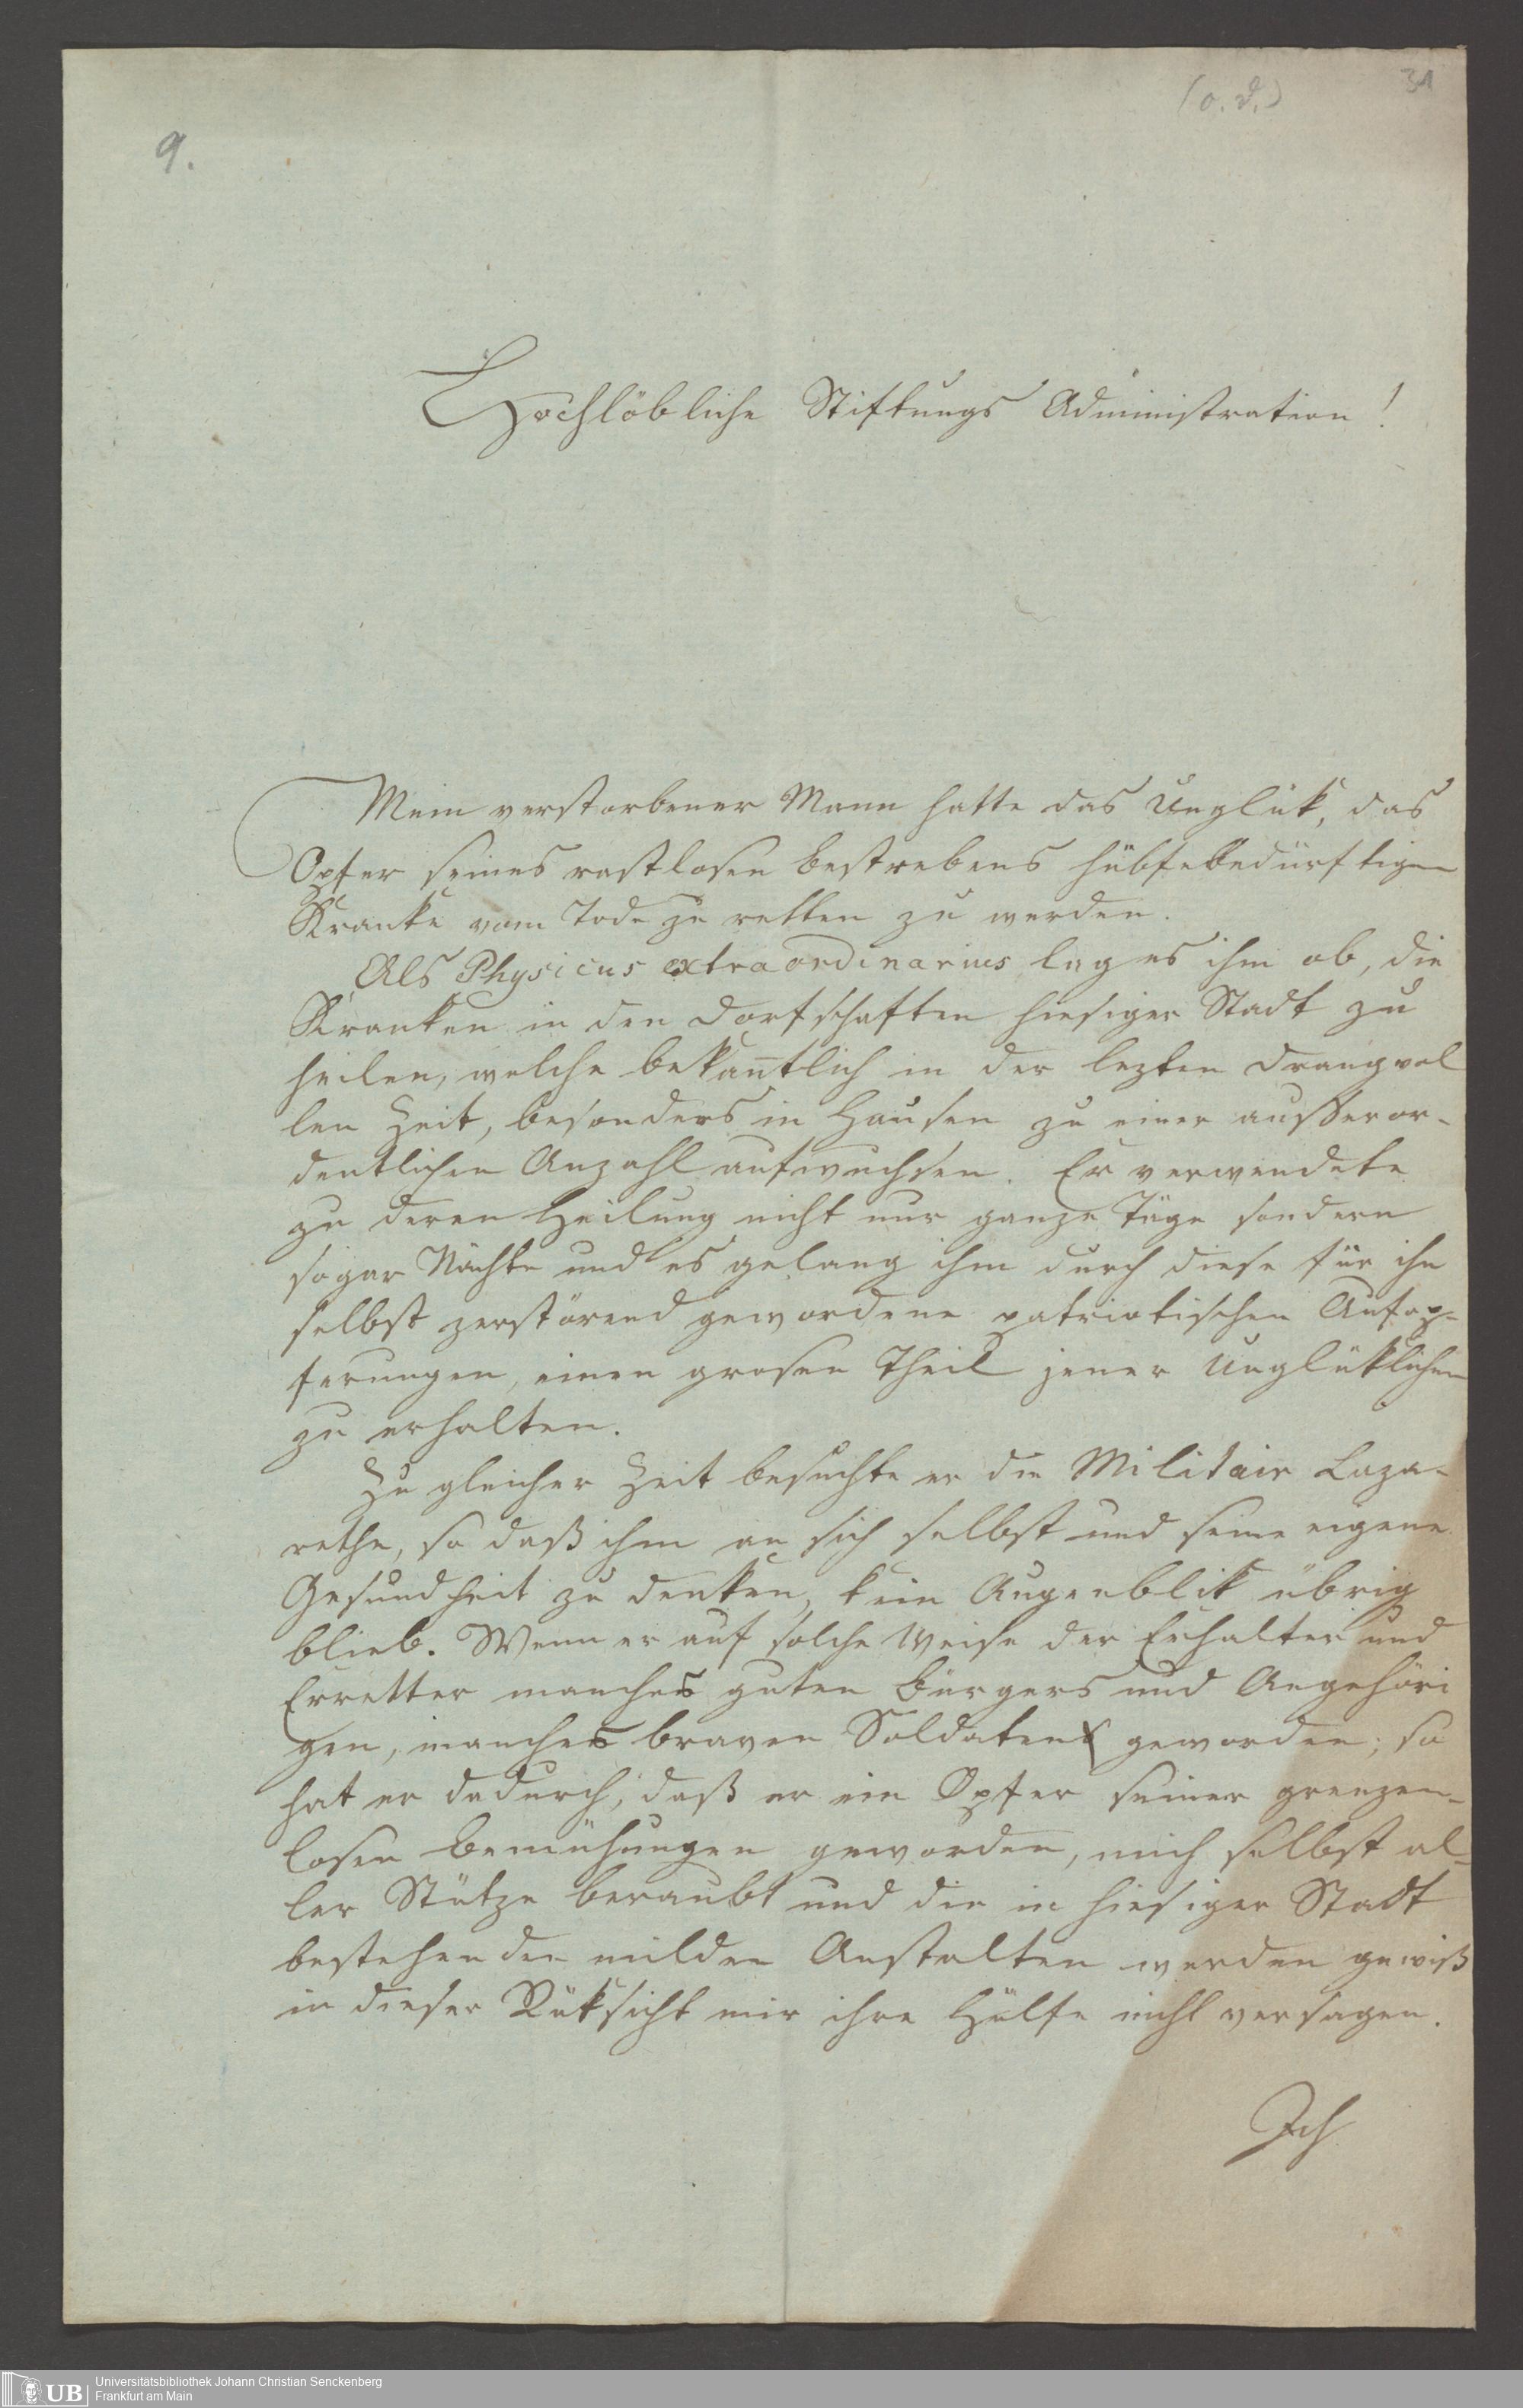 31
(o. D.)
9.
Hochlöbliche Stiftungs Administration!
Mein verstorbener Mann hatte das Unglük, das
Opfer seines rastlosen Bestrebens hülfebedürftigen
Kranke vom Tode zu retten zu werden.
Als Physicus extraordinarius lag es ihm ob, die
Kranken in den Dorfschaften hiesiger Stadt zu
heilen, welche bekan̄tlich in der lezten Drangvol
len Zeit, besonders in Hausen zu einer ausseror-
dentlichen Anzahl aufwuchsen. Er verwendete
zu deren Heilung nicht nur ganze Täge sondern
sogar Nächte und es gelang ihm durch diese für ihn
selbst zerstörend gewordene patriotischen Aufop-
ferungen, einen grosen Theil jener Unglüklichen
zu erhalten.
Zu gleicher Zeit besuchte er die Militair Laza-
rethe, so daß ihm an sich selbst und seine eigene
Gesundheit zu denken, kein Augenblik übrig
blieb. Wenn er auf solche Weise der Erhalter und
Erretter manches guten Bürgers und Angehöri
gen, manches braven Soldaten geworden; so
hat er dadurch, daß er ein Opfer seiner grenzen-
losen Bemühungen geworden, mich selbst al-
ler Stütze beraubt und die in hiesiger Stadt
bestehenden milden Anstalten werden gewiß
in dieser Rüksicht mir ihre Hülfe nicht versagen.
Ich
UB
Universitätsbibliothek Johann Christian Senckenberg
Frankfurt am Main